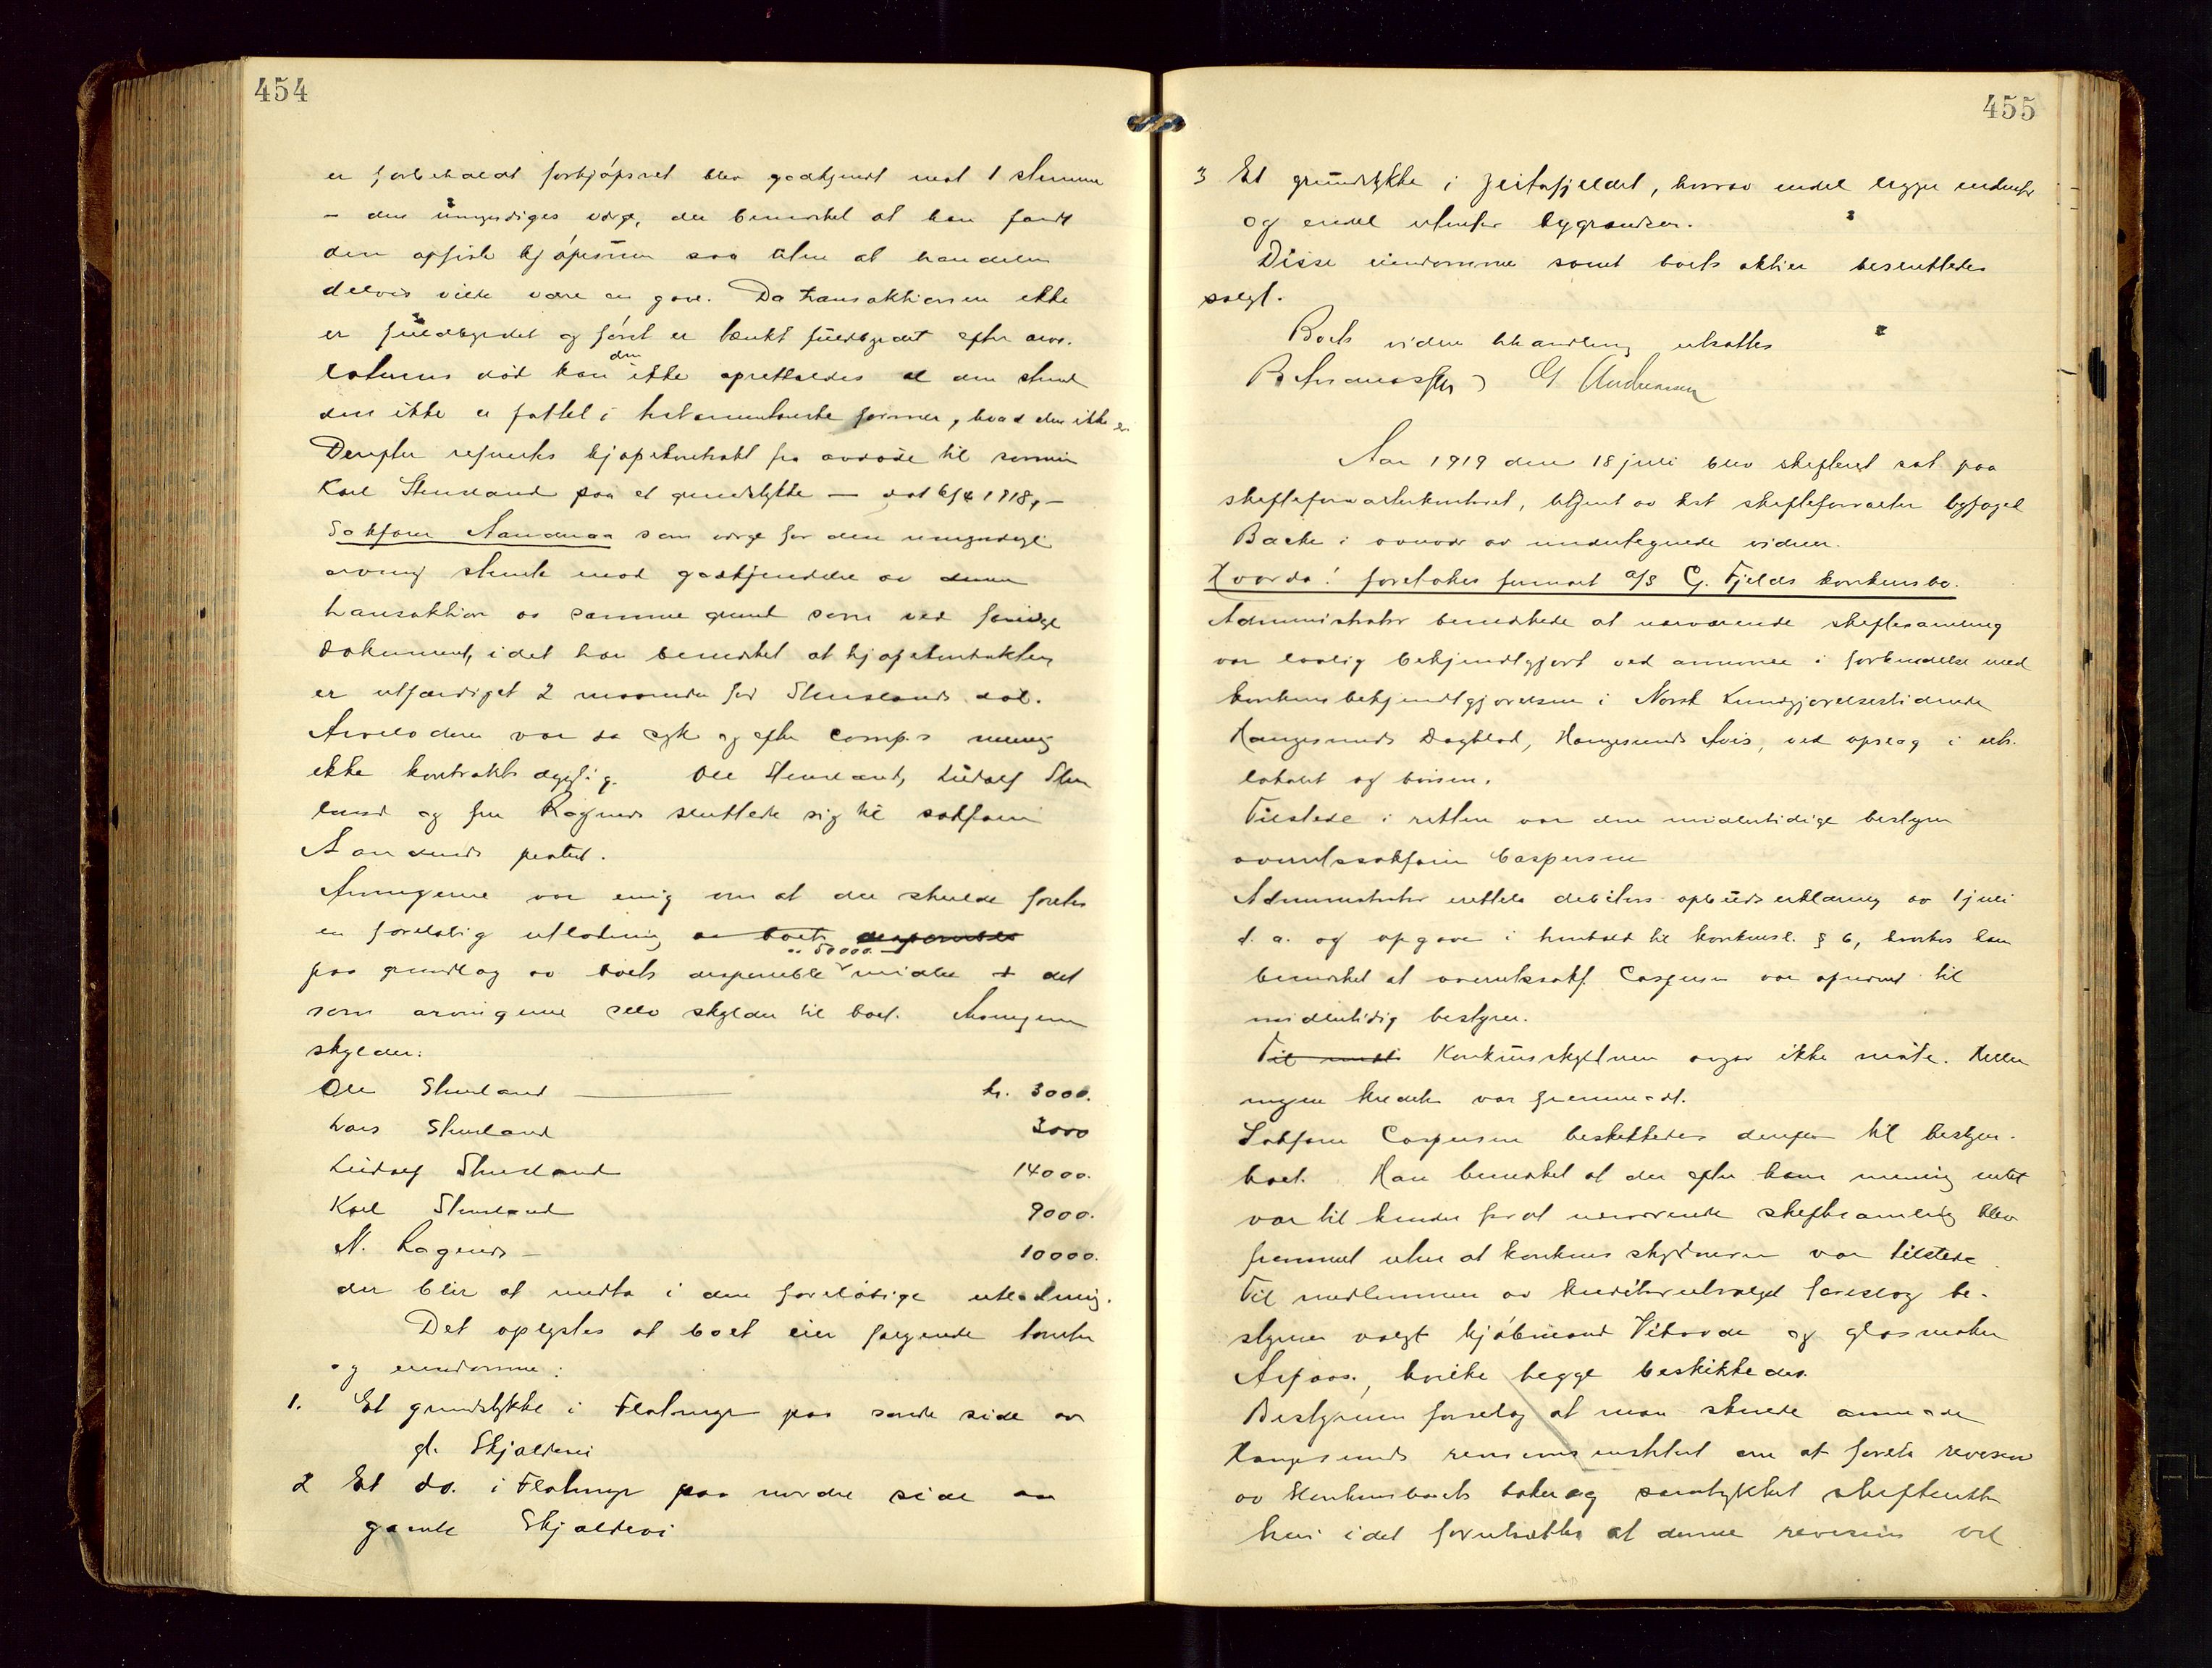 454
er forbeholdt forkjøpsret blev godkjendt mot 1 stemme
- den umyndiges værge, der bemerket at han fandt
den opførte kjøpesum saa liten at handelen
delvis vilde være en gave. Da transaktionen ikke
er fuldbyrdet og først er tænkt fuldbyrdet efter arve-
laterens død kan den ikke opretholdes al den stund
den ikke er fattet i testamentariske former, hvad den ikke er.
Derefter refertes kjøpekontrakt fra avdøde til sønnen
Karl Stensland paa et grundstykke - dat 6/4 1918, -
Sakfører Aandraa som værge for den umyndige
arving stemte mod godkjendelse av denne
transaktion av samme grund som ved forrige
dokument, idet han bemerket at kjøpekontrakten
er utfærdiget 2 maaneder før Stenslands død.
Arveladeren var da syk og efter comp.s mening
ikke kontraktsdygtig. Ole Stensland, Ludolf Stens
land og fru Røgnes sluttede sig til sakfører
Aandraas protest.
Arvingerne var enig om at der skulde foretas
en foreløbig utlodning av boets disponible
av 50000.-
paa grundlag av boets disponible midler + det
som arvingerne selv skylder til boet. Arvingerne
skylder:
Ole Stensland kr. 3000.
Lars Stensland 3000
Ludolf Stensland 14000.
Karl Stensland 9000.
N. Røgnes - 10000.
der blir at medta i den foreløbige utlodning.
Det oplystes at boet eier følgende tomter
og eiendomme:
1. Et grundstykke i Flotmyr paa søndre side av
gl. Skjoldevei
2 Et do. i Flotmyr paa nordre side av
gamle Skjoldevei
455
3 Et grundstykke i Geitafjeldet, hvorav endel ligger indenfor
og endel utenfor bygrændsen.
Disse eiendomme samt boets aktier besluttedes
solgt.
Boets videre behandling utsattes
Aar 1919 den 18 juli blev skifteret sat paa
skifteforvalterkontoret, betjent av kst skifteforvalter byfoged
Backe i overvær av undertegnede vidner.
Hvorda: foretokes firmaet a/s G. Fjelds konkursbo.
Administrator bemerkede at nærværende skiftesamling
var lovlig bekjendtgjort ved annonce i forbindelse med
konkursbekjendtgjørelsen i Norsk Kundgjørelsestidende
Haugesunds Dagblad, Haugesunds Avis, ved opslag i rets-
lokalet og børsen.
Tilstede i retten var den midlertidige bestyrer
overretssakfører Caspersen
Administrator fremla debitors opbudserklæring av 1 juli
d. a. og opgave i henhold til konkursl. § 6, hvorhos han
bemerket at overretssakf. Caspersen var opnævnt til
midlertidig bestyrer.
Til midl Konkursskyldneren avgav ikke møte. Heller
ingen kreditor var fremmødt.
Sakfører Caspersen beskikkedes derefter til bestyrer.
boet. Han bemerket at der efter hans mening intet
var til hinder for at nærværende skiftesamling blev
fremmet uten at konkursskyldneren var tilstede
Til medlemmer av kreditorutvalget foreslog be-
styreren valgt kjøbmand Vikvode og glasmester
Aspaas, hvilke begge beskikkedes.
Bestyreren foreslog at man skulde anmode
Haugesunds revisionsinstitut om at foreta revision
av konkursboets bøker og samtykket skifteretten
heri idet forutsættes at denne revision vil